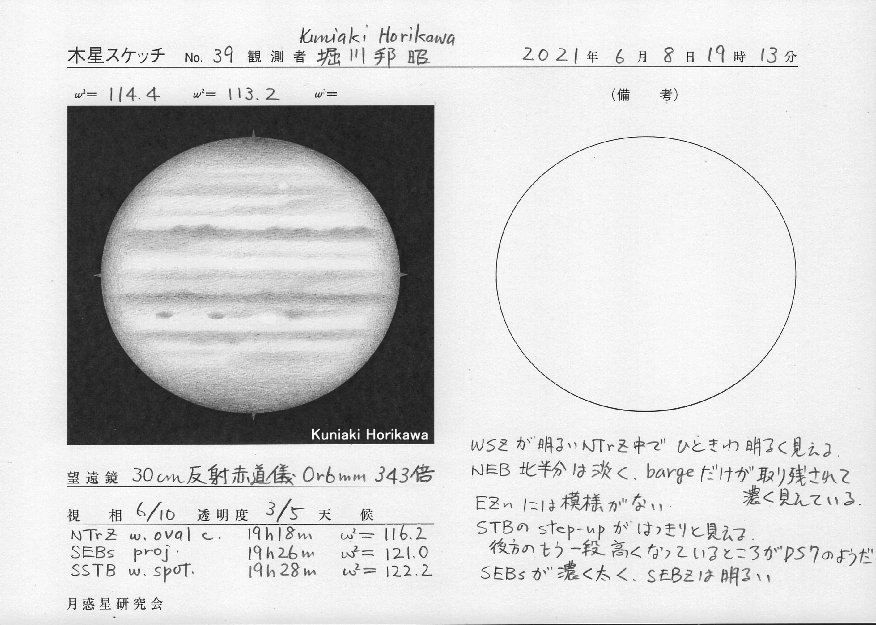 Kuniaki Horikawa
木星スケッチ No. 39 観測者 堀川邦昭 2021年6月8日19時13分
ω¹= 114.4 ω²= 113.2 ω=
(備 考)
Kuniaki Horikawa
WSZが明るいNTrZ中でひときわ明るく見える.
望遠鏡 30cm反射赤道儀 Or6mm 343倍
NEB北半分は淡く、bargeだけが取り残されて
濃く見えている.
視相 6/10 透明度 3/5 天候
EZnには模様がない.
NTrZ w. oval c. 19h18m ω²= 116.2
STBのstep-upがはっきりと見える.
SEBs proj. 19h26m ω²= 121.0
後方のもう一段高くなっているところがDS7のようだ
SSTB w. spot. 19h28m ω²= 122.2
SEBsが濃く太く、SEBZは明るい
月惑星研究会